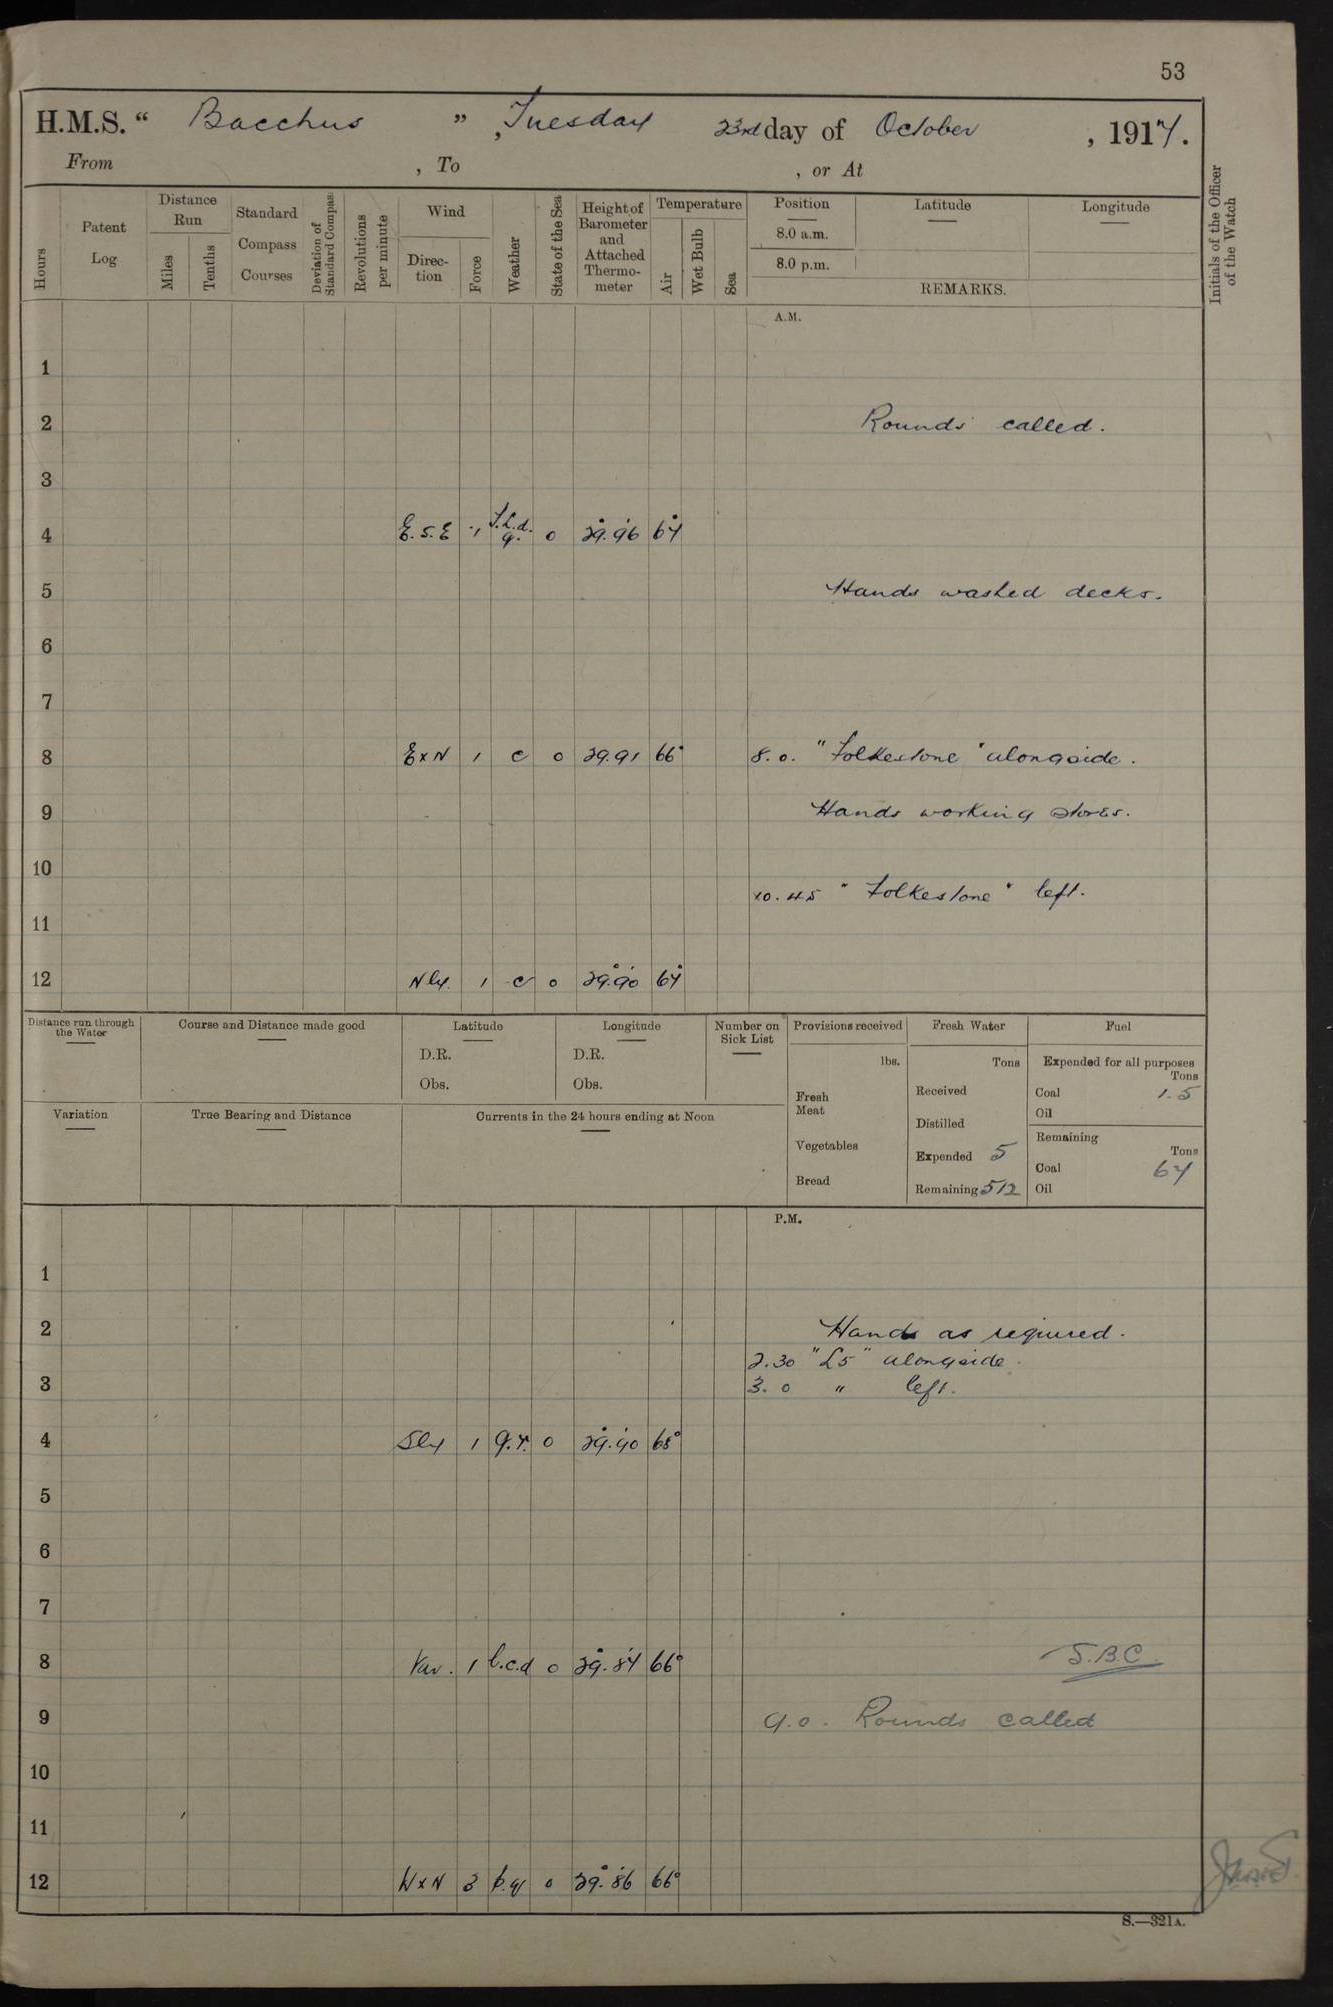 53
H.M.S. " Bacchus ", Tuesday 23rd day of October, 1917.
From , To , or At
Hours
Patent Log
Distance Run
Miles
Tenths
Standard Compass Courses
Deviation of Standard Compass
Revolutions per minute
Wind
Direction
Force
Weather
State of the Sea
Height of Barometer and Attached Thermometer
Temperature
Air
Wet Bulb
Sea
Position
8.0 a.m.
8.0 p.m.
Latitude
Longitude
REMARKS.
Initials of the Officer of the Watch
A.M.
1
2 Rounds called.
3
4 E.S.E 1 0 29.96 67
5 Hands washed decks.
6
7
8 E x N 1 c 0 29.91 66° 8.0. "Folkestone" alongside.
9 Hands working stores.
10
10.45 "Folkestone" left.
11
12 Nly. 1 c 0 29.90 67°
Distance run through the Water
Course and Distance made good
Latitude
D.R.
Obs.
Longitude
D.R.
Obs.
Number on Sick List
Provisions received
lbs.
Fresh Meat
Vegetables
Bread
Fresh Water
Tons
Received
Distilled
Expended 5
Remaining 512
Fuel
Expended for all purposes
Tons
Coal 1.5
Oil
Remaining
Tons
Coal 67
Oil
Variation
True Bearing and Distance
Currents in the 24 hours ending at Noon
P.M.
1
2 Hands as required.
2.30 "L5" alongside.
3 3.0 " left.
4 Sly 1 q.r. 0 29.90 68°
5
6
7
8 Var. 1 b.c.d 0 29.87 66° S.B.C.
9 9.0. Rounds called
10
11
12 W x N 3 b.q 0 29.86 66°
S.—321A.